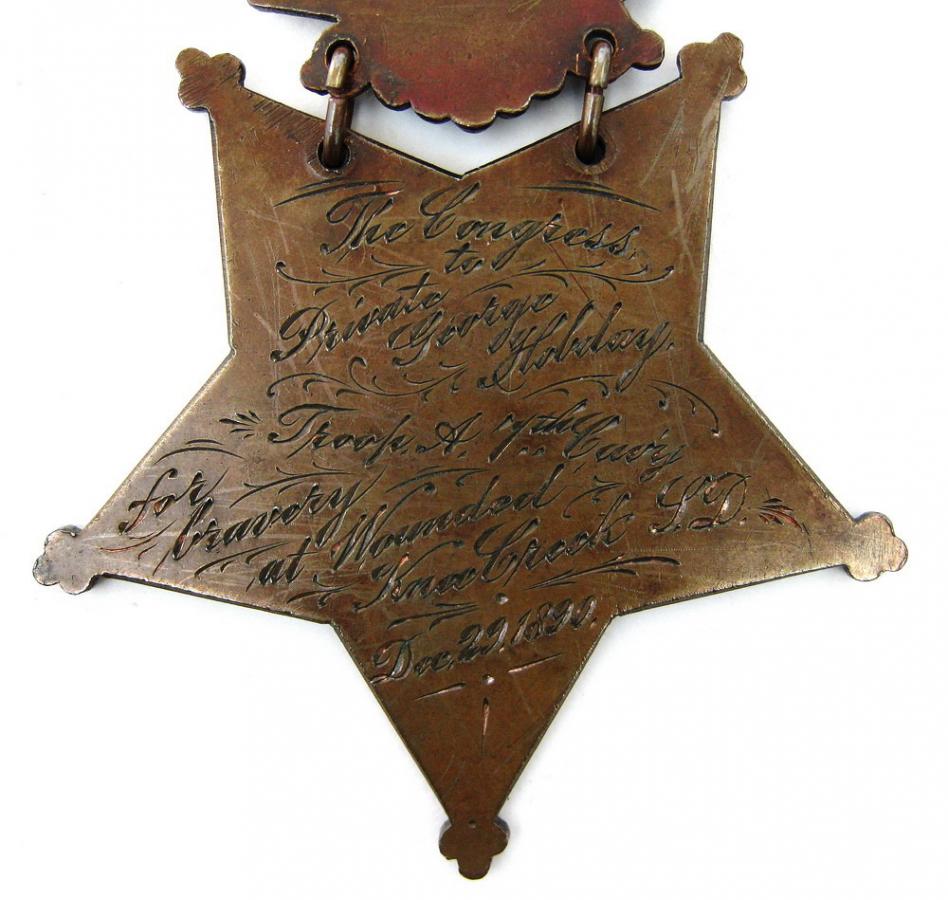 The Congress
to
Private
George
Hobday.
Troop. A. 7th Cav'y
for
bravery
at Wounded
Knee Creek S.D.
Dec. 29. 1890.